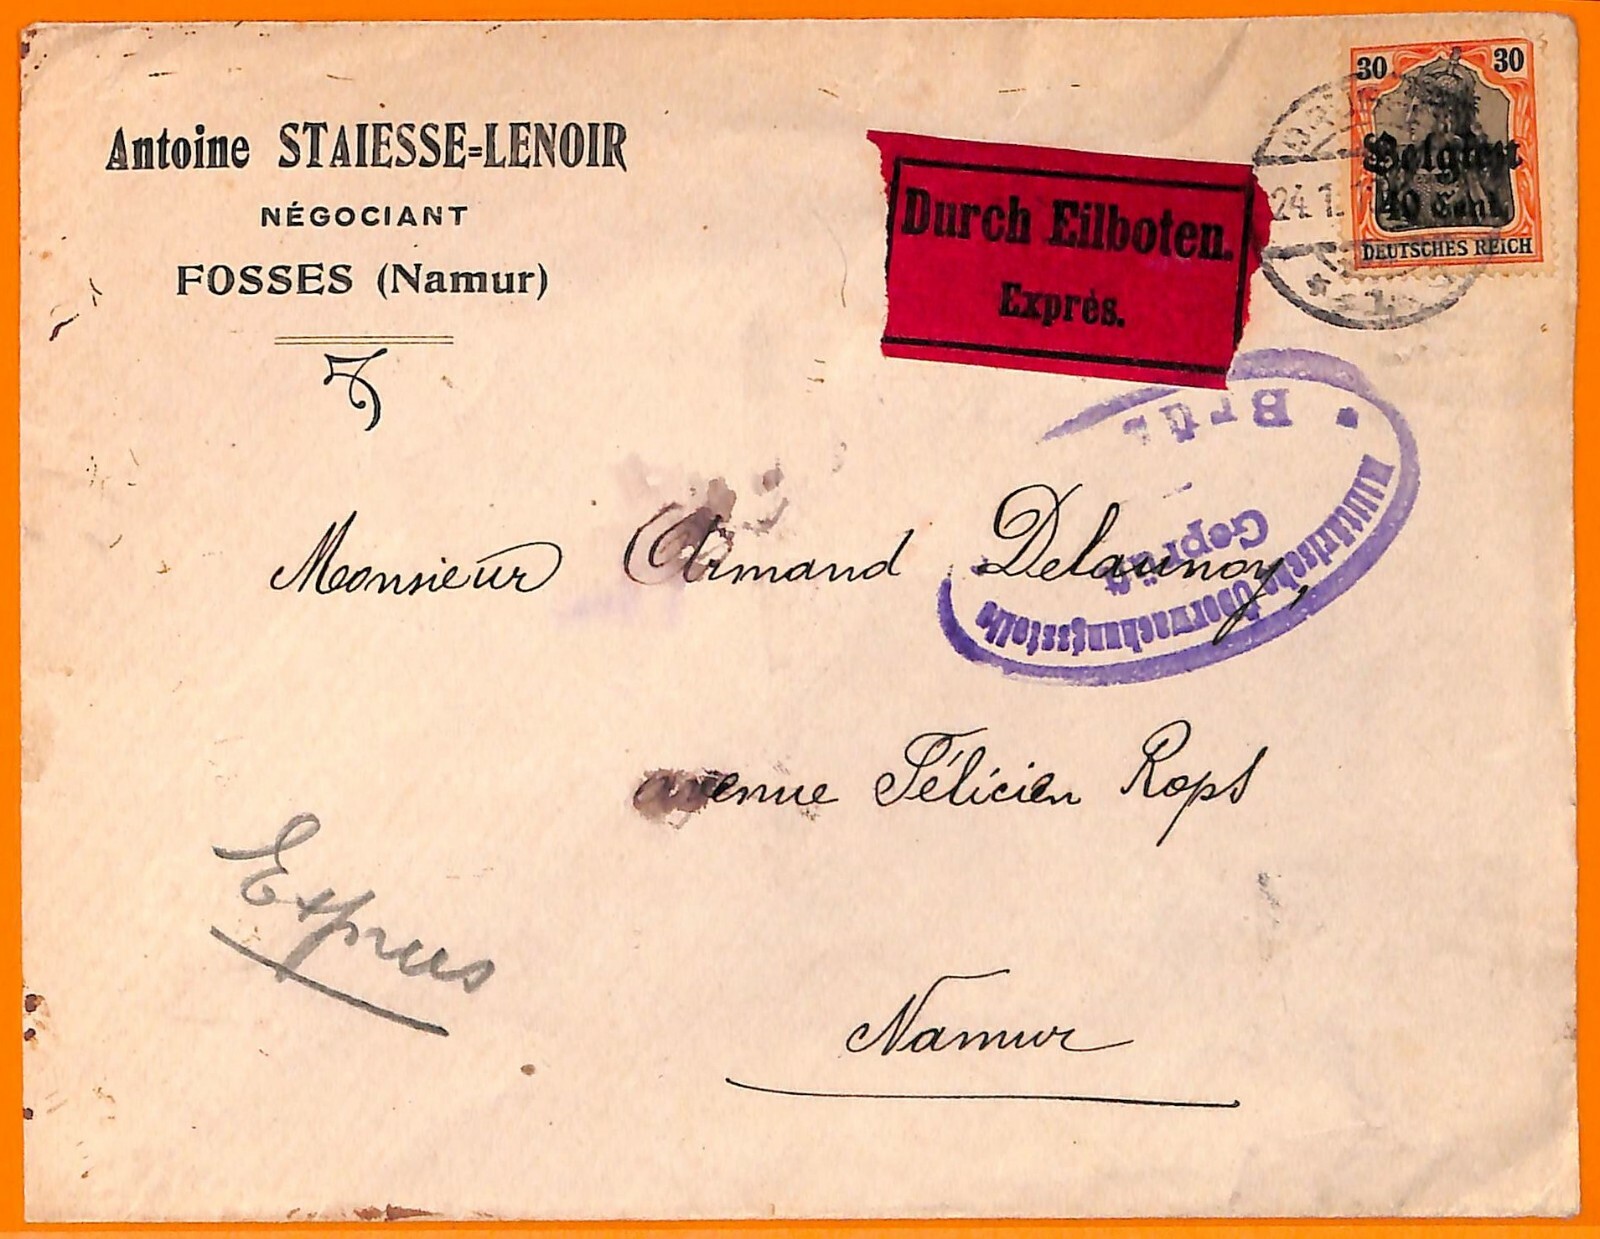 Antoine STAIESSE-LENOIR
NÉGOCIANT
FOSSES (Namur)
Durch Eilboten.
Exprès.
30 30
Belgien
40 Cent.
DEUTSCHES REICH
24.1.
1
Militärische Überwachungsstelle
Geprüft
Monsieur Armand Delaunoy,
avenue Félicien Rops
Namur
Exprès